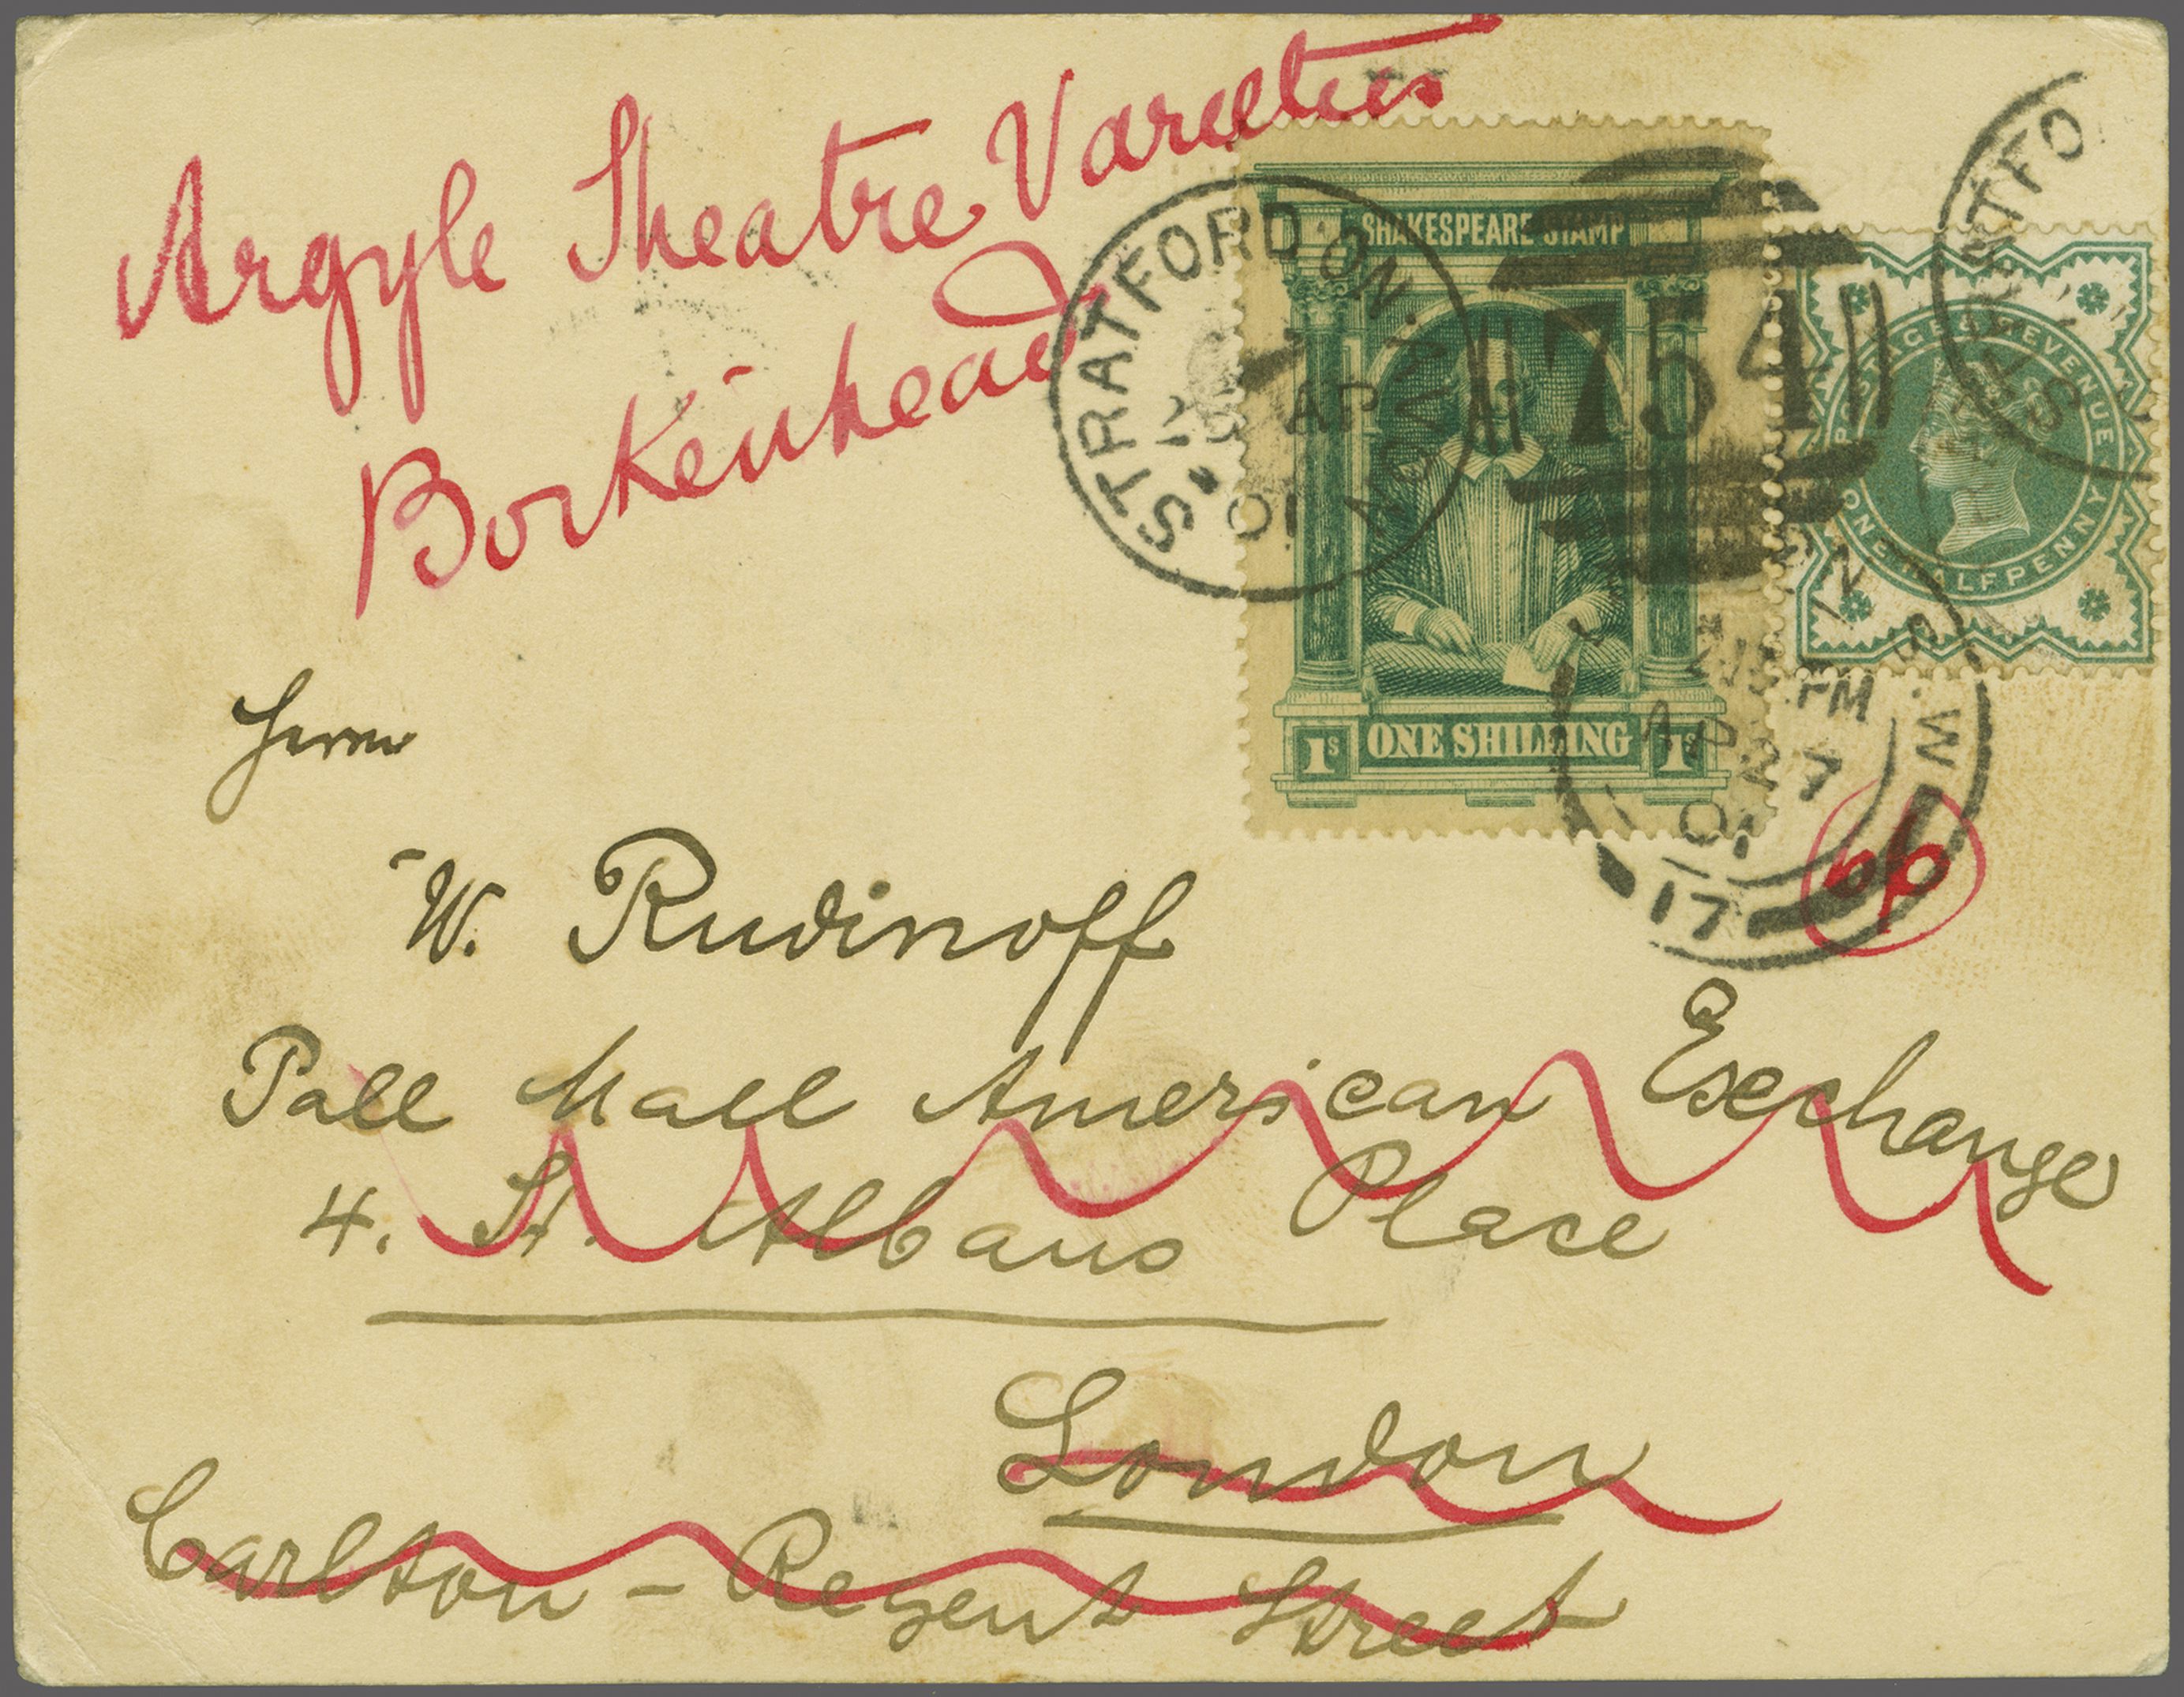 Argyle Theatre Varieties
Borkenhead
STRATFORD ON AVON
AP
01
SHAKESPEARE STAMP
1s ONE SHILLING 1s
754
POSTAGE & REVENUE
ONE HALFPENNY
STRATFO
S.W
PM
AP 27
01
17
Herrn
W. Rudinoff
Pall Mall American Exchange
4. St. Albans Place
London
Carlton - Regent Street